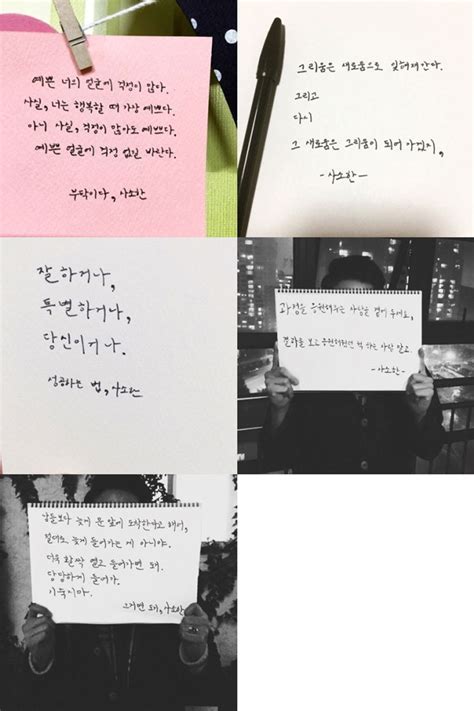 예쁜 너의 얼굴에 걱정이 많아.
사실, 너는 행복할 때 가장 예쁘다.
아니 사실, 걱정이 많아도 예쁘다.
예쁜 얼굴에 걱정 없길 바란다.
부탁이다, 사소한
그리움은 새로움으로 잊혀져간다.
그리고
다시
그 새로움은 그리움이 되어 가겠지,
-사소한-
잘하거나,
특별하거나,
당신이거나.
성공하는 법, 사소한
과정을 응원해주는 사람을 곁에 두세요,
결과를 보고 응원해줬던 척 하는 사람 말고
-사소한-
남들보다 늦게 문 앞에 도착한다고 해서,
절대로 늦게 들어가는 게 아니야.
더욱 활짝 열고 들어가면 돼.
당당하게 들어가.
기죽지마.
그거면 돼, 사소한